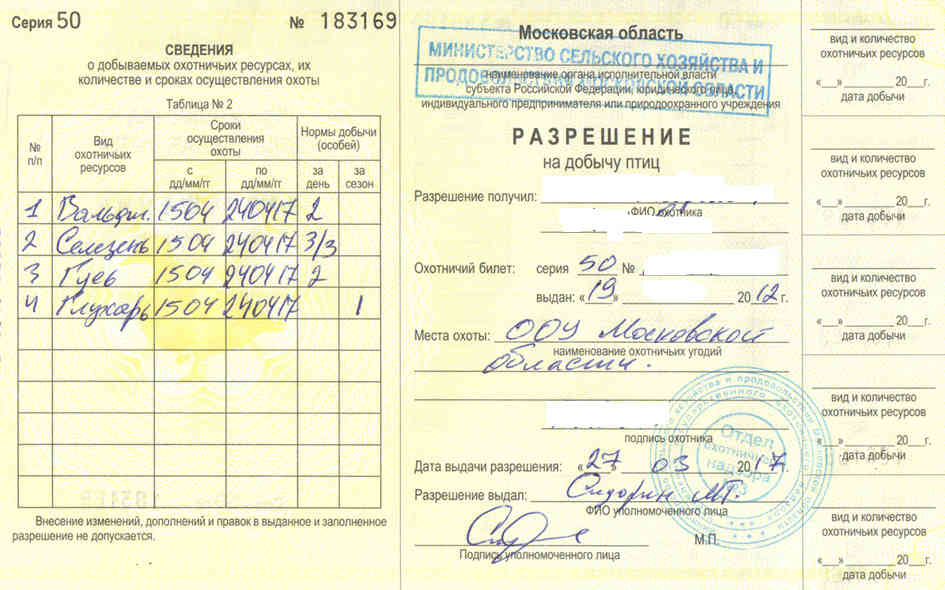 Серия 50 № 183169
СВЕДЕНИЯ
о добываемых охотничьих ресурсах, их
количестве и сроках осуществления охоты
Таблица № 2
№ п/п
Вид охотничьих ресурсов
Сроки осуществления охоты
Нормы добычи (особей)
с дд/мм/гг
по дд/мм/гг
за день
за сезон
1 Вальдш. 1504 240417 2
2 Селезень 1504 240417 3/3
3 Гусь 1504 240417 2
4 Глухарь 1504 240417 1
Внесение изменений, дополнений и правок в выданное и заполненное
разрешение не допускается.
Московская область
МИНИСТЕРСТВО СЕЛЬСКОГО ХОЗЯЙСТВА И
ПРОДОВОЛЬСТВИЯ МОСКОВСКОЙ ОБЛАСТИ
наименование органа исполнительной власти
субъекта Российской Федерации, юридического лица,
индивидуального предпринимателя или природоохранного учреждения
РАЗРЕШЕНИЕ
на добычу птиц
Разрешение получил:
ФИО охотника
Охотничий билет: серия 50 №
выдан: «19» 2012 г.
Места охоты: ООУ Московской
наименование охотничьих угодий
области.
подпись охотника
Дата выдачи разрешения: «27» 03 2017 г.
Разрешение выдал: Сидорин М.Т.
ФИО уполномоченного лица
Подпись уполномоченного лица
М.П.
Отдел
охотничьего
надзора
№3
вид и количество
охотничьих ресурсов
«__» ______ 20__г.
дата добычи
вид и количество
охотничьих ресурсов
«__» ______ 20__г.
дата добычи
вид и количество
охотничьих ресурсов
«__» ______ 20__г.
дата добычи
вид и количество
охотничьих ресурсов
«__» ______ 20__г.
дата добычи
вид и количество
охотничьих ресурсов
«__» ______ 20__г.
дата добычи